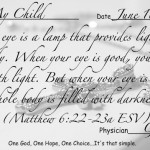 My Child Date June 1
eye is a lamp that provides lig
y. When your eye is good, you
th light. But when your eye is
hole body is filled with darkne
(Matthew 6:22-23a ESV)
Physician
One God, One Hope, One Choice...It's that simple.